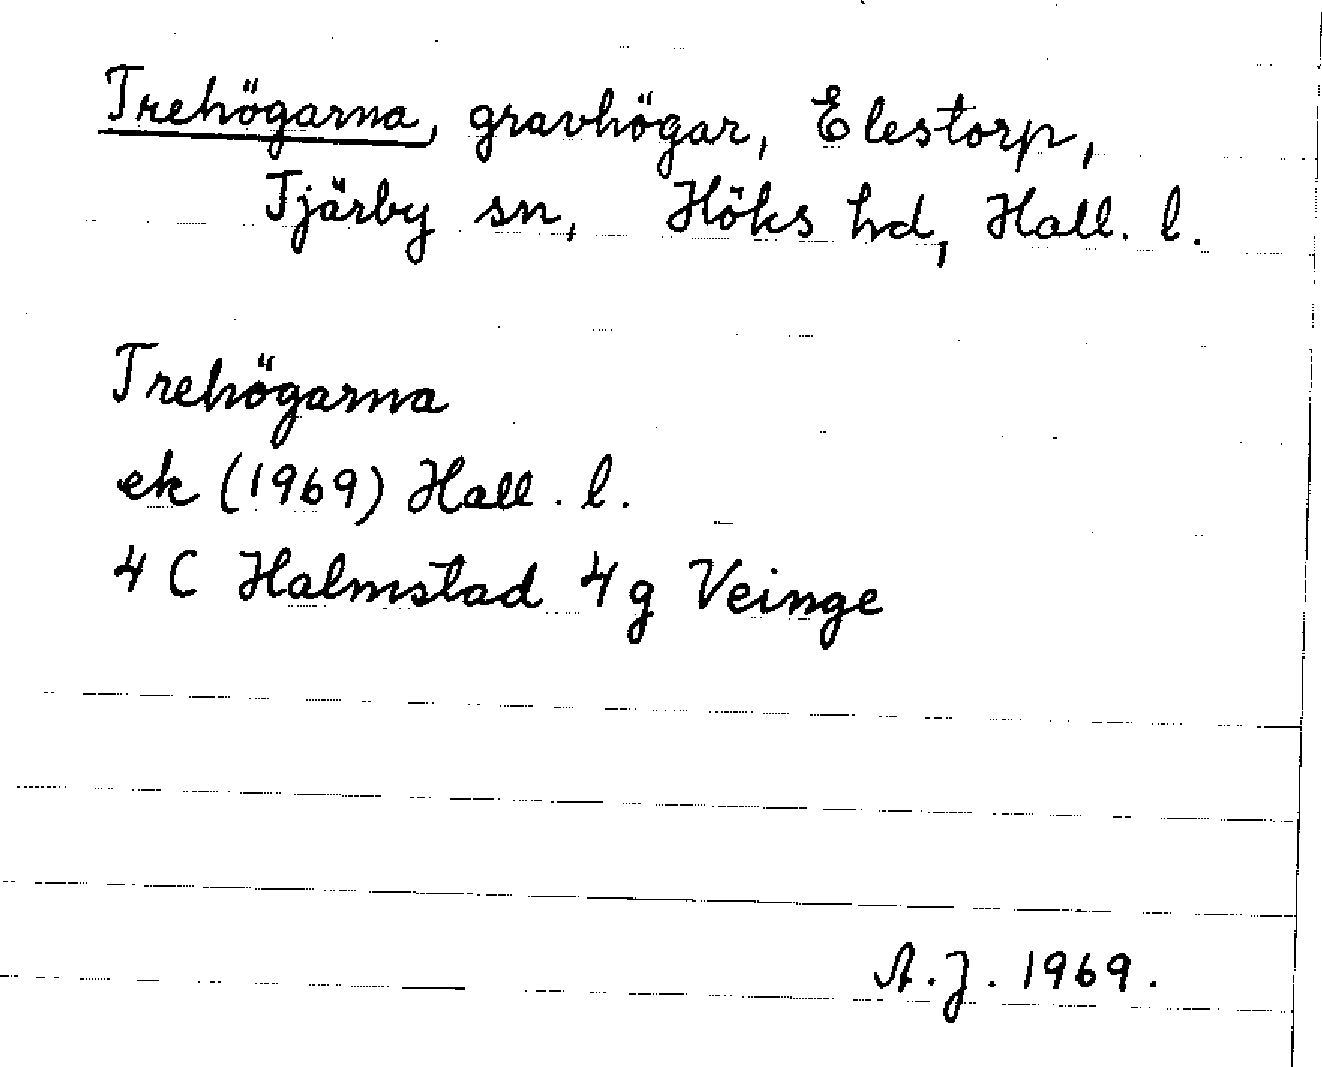 Trehögarna, gravhögar, Elestorp,
Tjärby sn, Höks hd, Hall. l.
Trehögarna
ek (1969) Hall. l.
4 C Halmstad 4 g Veinge
A.J. 1969.